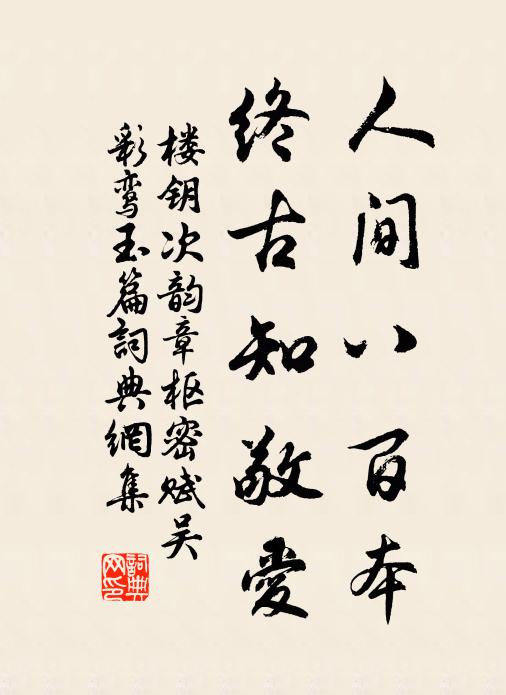 人间八百本
终古知敬爱
楼钥次韵章枢密赋吴
彩鸾玉篇詞典網集
詞典
网印